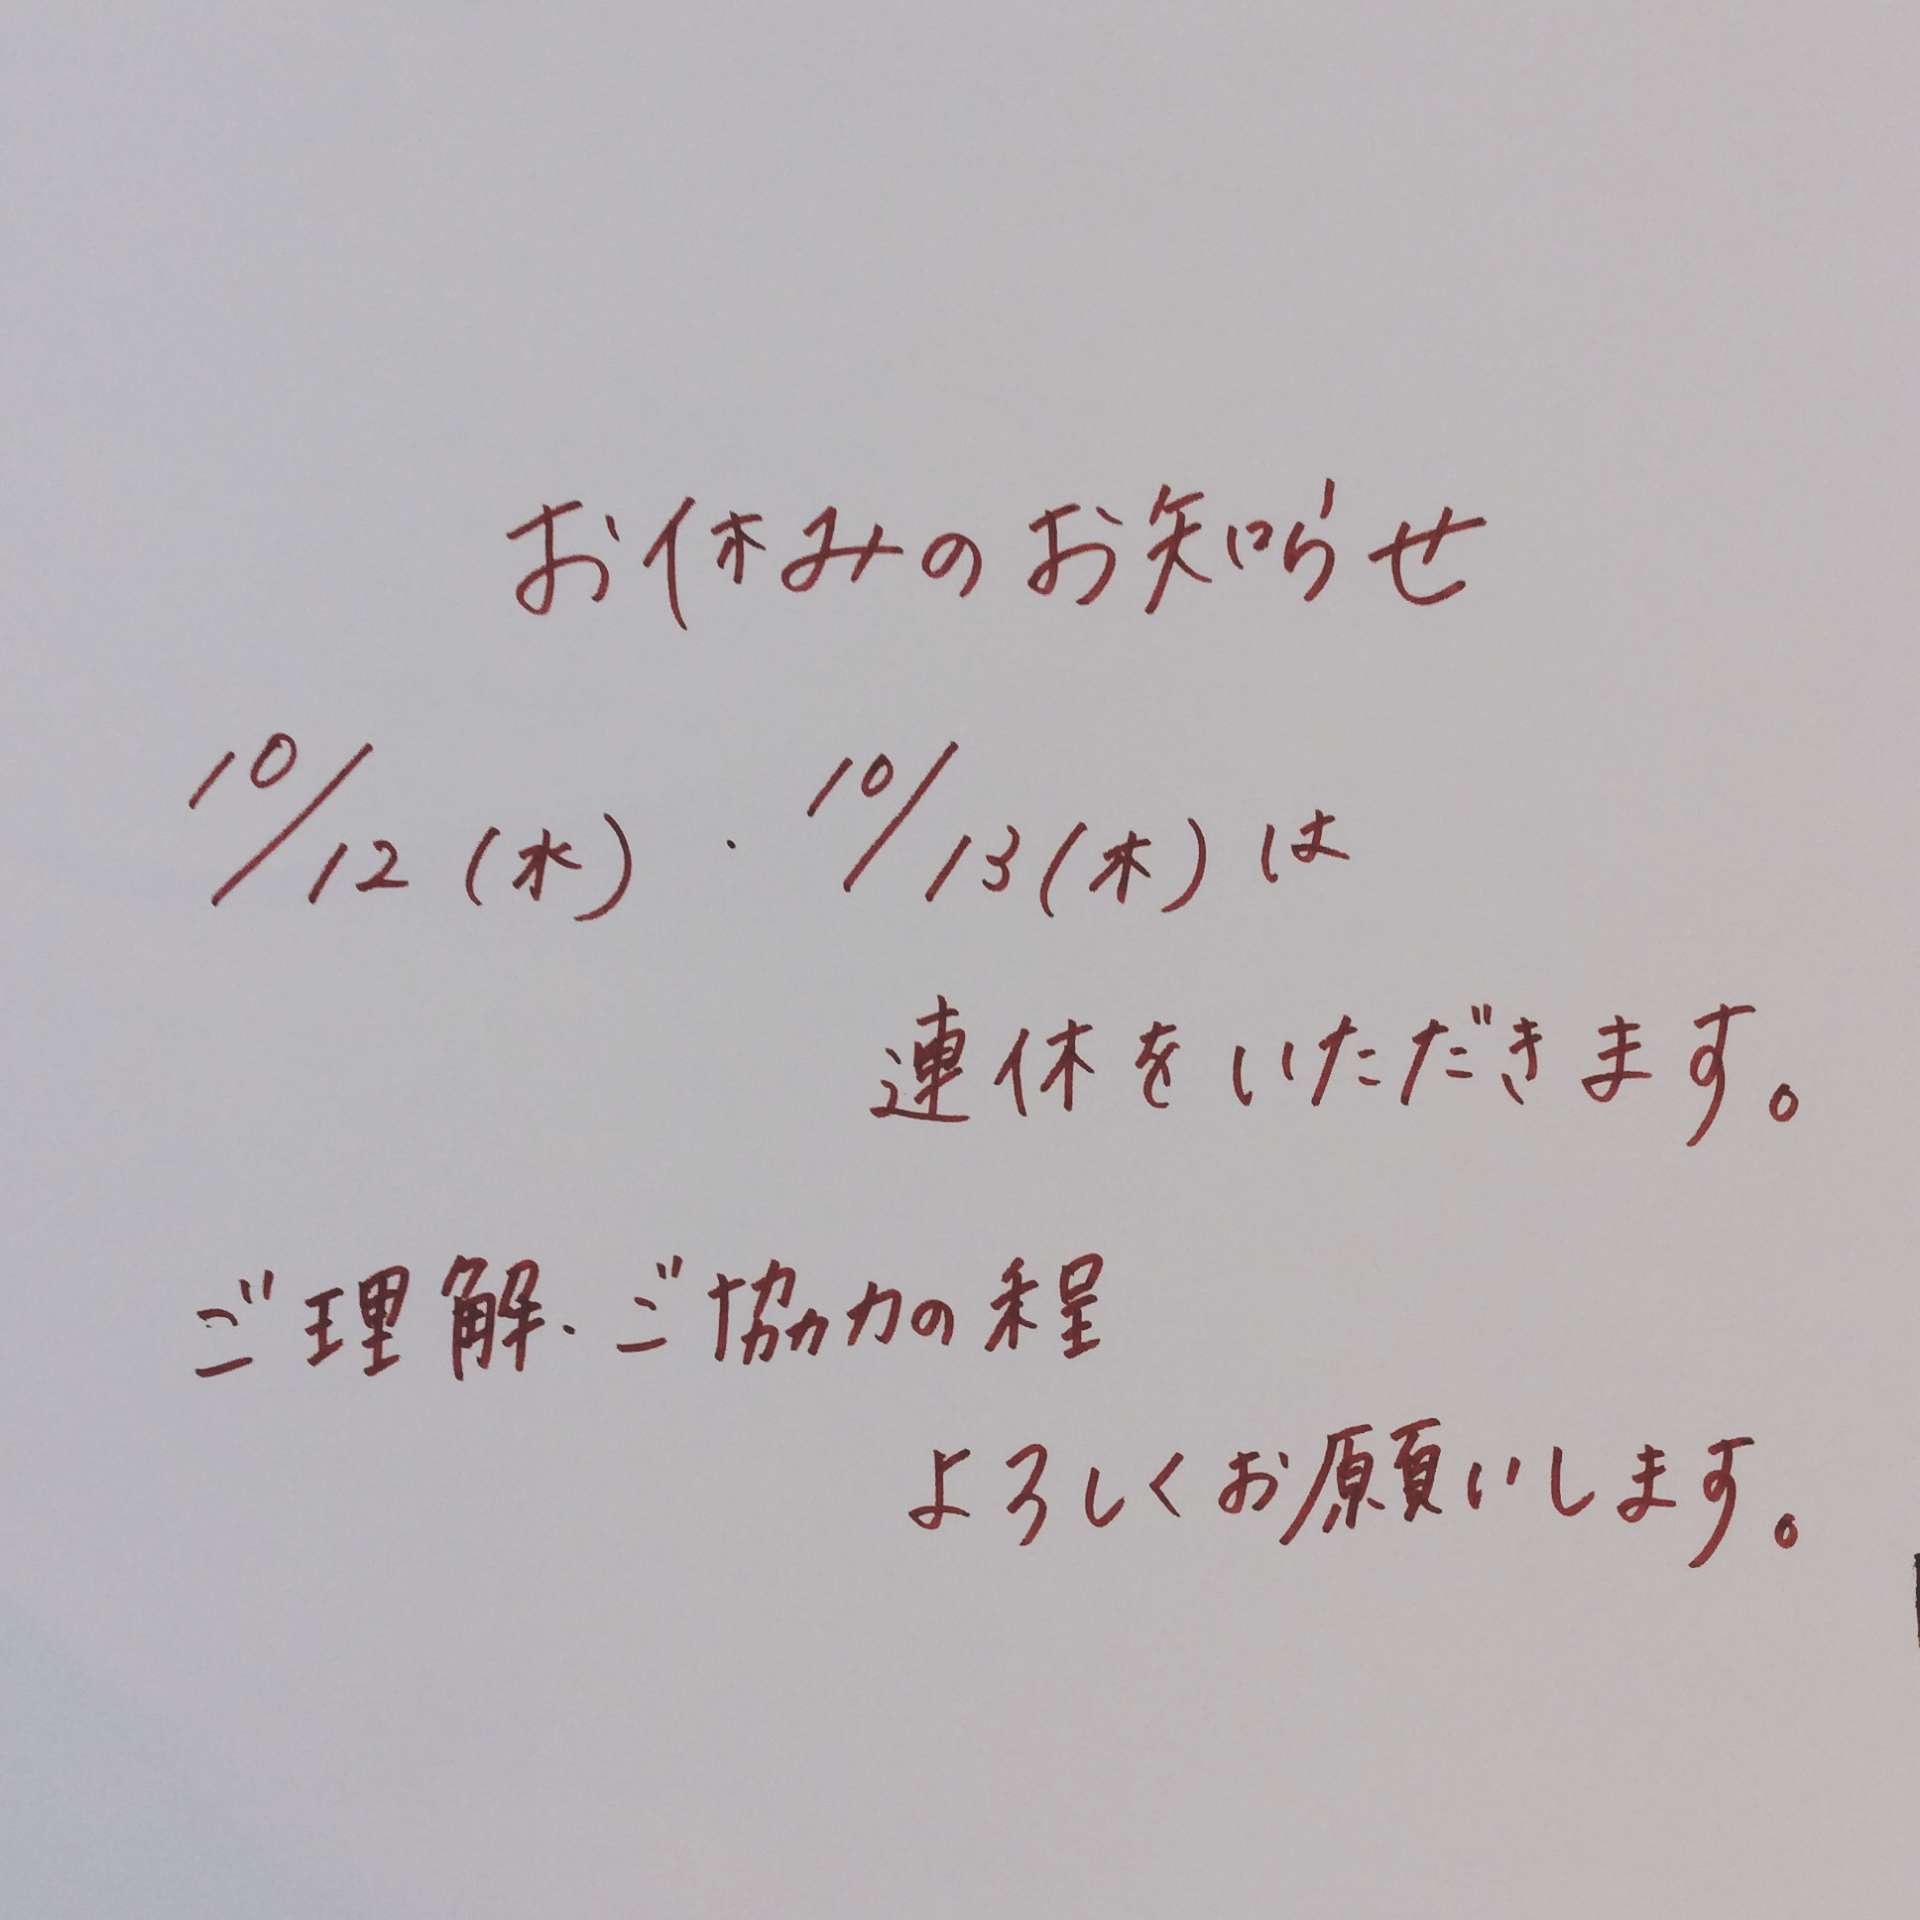 お休みのお知らせ
10/12(水)・10/13(木)は
連休をいただきます。
ご理解・ご協力の程
よろしくお願いします。